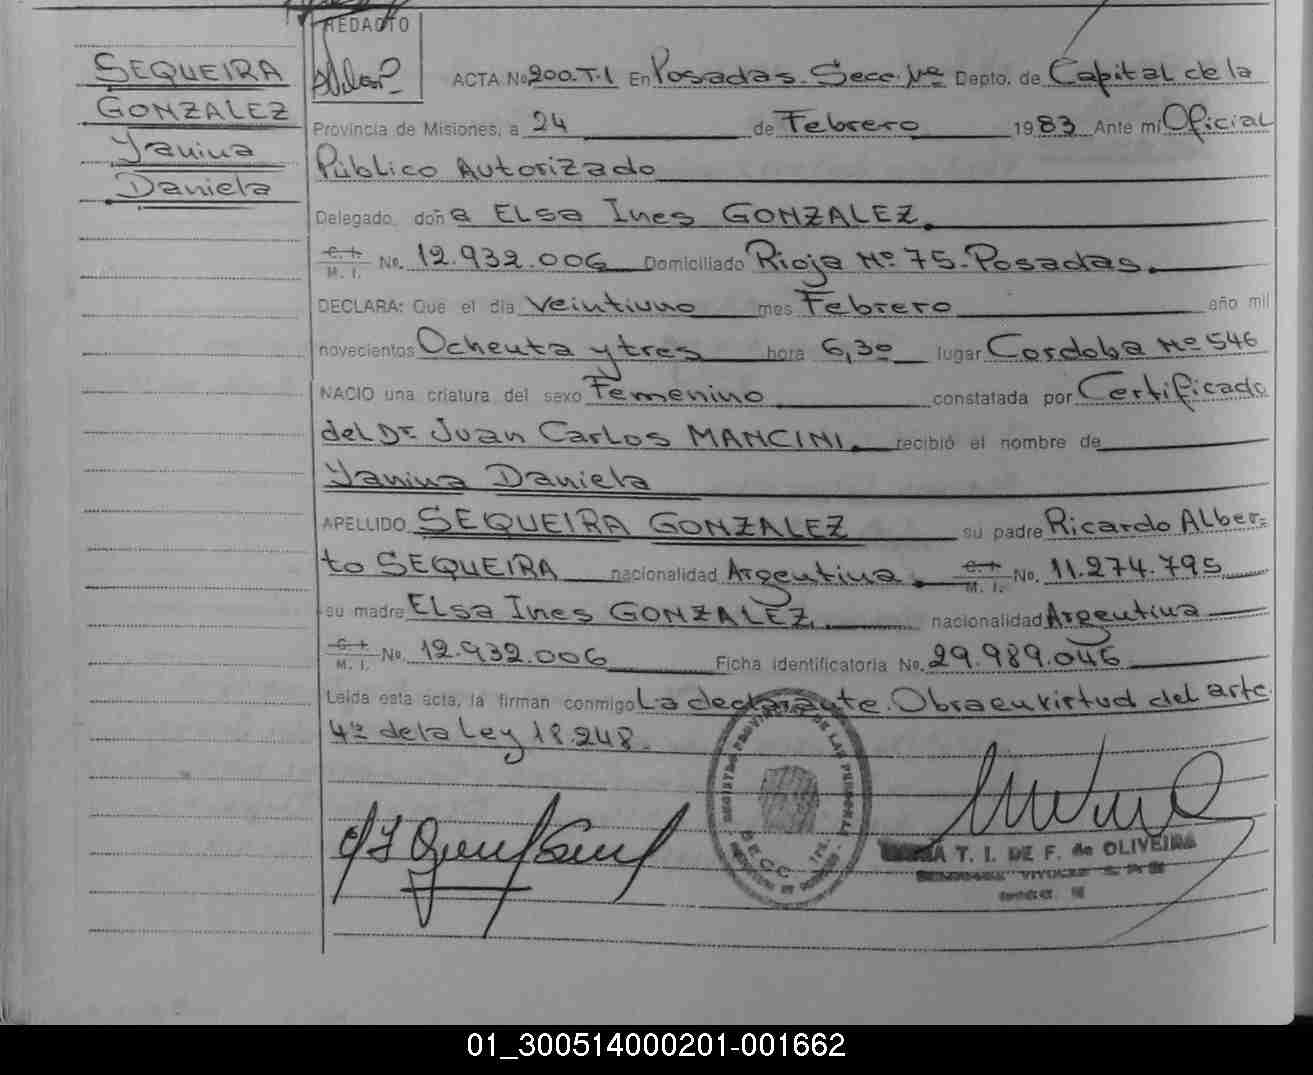 REDACTO
SEQUEIRA
GONZALEZ
Yanina
Daniela
ACTA No 200.T.I En Posadas. Secc. 1ra Depto. de Capital de la
Provincia de Misiones, a 24 de Febrero 1983 Ante mi Oficial
Público Autorizado
Delegado, doña ELSA Ines GONZALEZ.
C. I. M. I. No. 12.932.006 Domiciliado Rioja Nº 75-Posadas.
DECLARA: Que el dia Veintiuno mes Febrero año mil
novecientos Ochenta y tres hora 6,30 lugar Cordoba Nº 546
NACIO una criatura del sexo Femenino constatada por Certificado
del Dr. Juan Carlos MANCINI. recibió el nombre de
Yanina Daniela
APELLIDO SEQUEIRA GONZALEZ su padre Ricardo Alber=
to SEQUEIRA nacionalidad Argentina. C. I. M. I. No. 11.274.795
su madre ELSA Ines GONZALEZ. nacionalidad Argentina
C. I. M. I. No. 12.932.006 Ficha identificatoria No. 29.989.045
Leída esta acta, la firman conmigo La declarante. Obra en virtud del arte.
4º de la Ley 18.248.
REGISTRO PROVINCIAL DE LAS PERSONAS
T. I. DE F. de OLIVEIRA
01_300514000201-001662